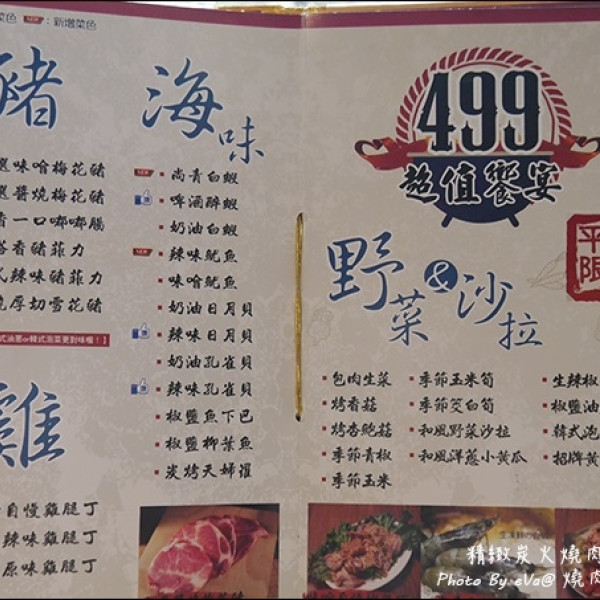 菜色 NEW：新增菜色
豬
選味噌梅花豬
選醬燒梅花豬
香一口嘟嘟腸
塔香豬菲力
式辣味豬菲力
燒厚切雪花豬
式油蔥or韓式泡菜更對味喔！】
雞
自慢雞腿丁
辣味雞腿丁
原味雞腿丁
海味
NEW 尚青白蝦
啤酒醉蝦
奶油白蝦
NEW 辣味魷魚
味噌魷魚
奶油日月貝
辣味日月貝
奶油孔雀貝
辣味孔雀貝
椒鹽魚下巴
椒鹽柳葉魚
炭烤天婦羅
499
超值饗宴
平
限
野菜&沙拉
包肉生菜
烤香菇
烤杏鮑菇
季節青椒
季節玉米
季節玉米筍
季節茭白筍
和風野菜沙拉
和風洋蔥小黃瓜
生辣椒
椒鹽油
韓式泡
招牌黃
精緻炭火燒肉
Photo By eVa@ 燒肉